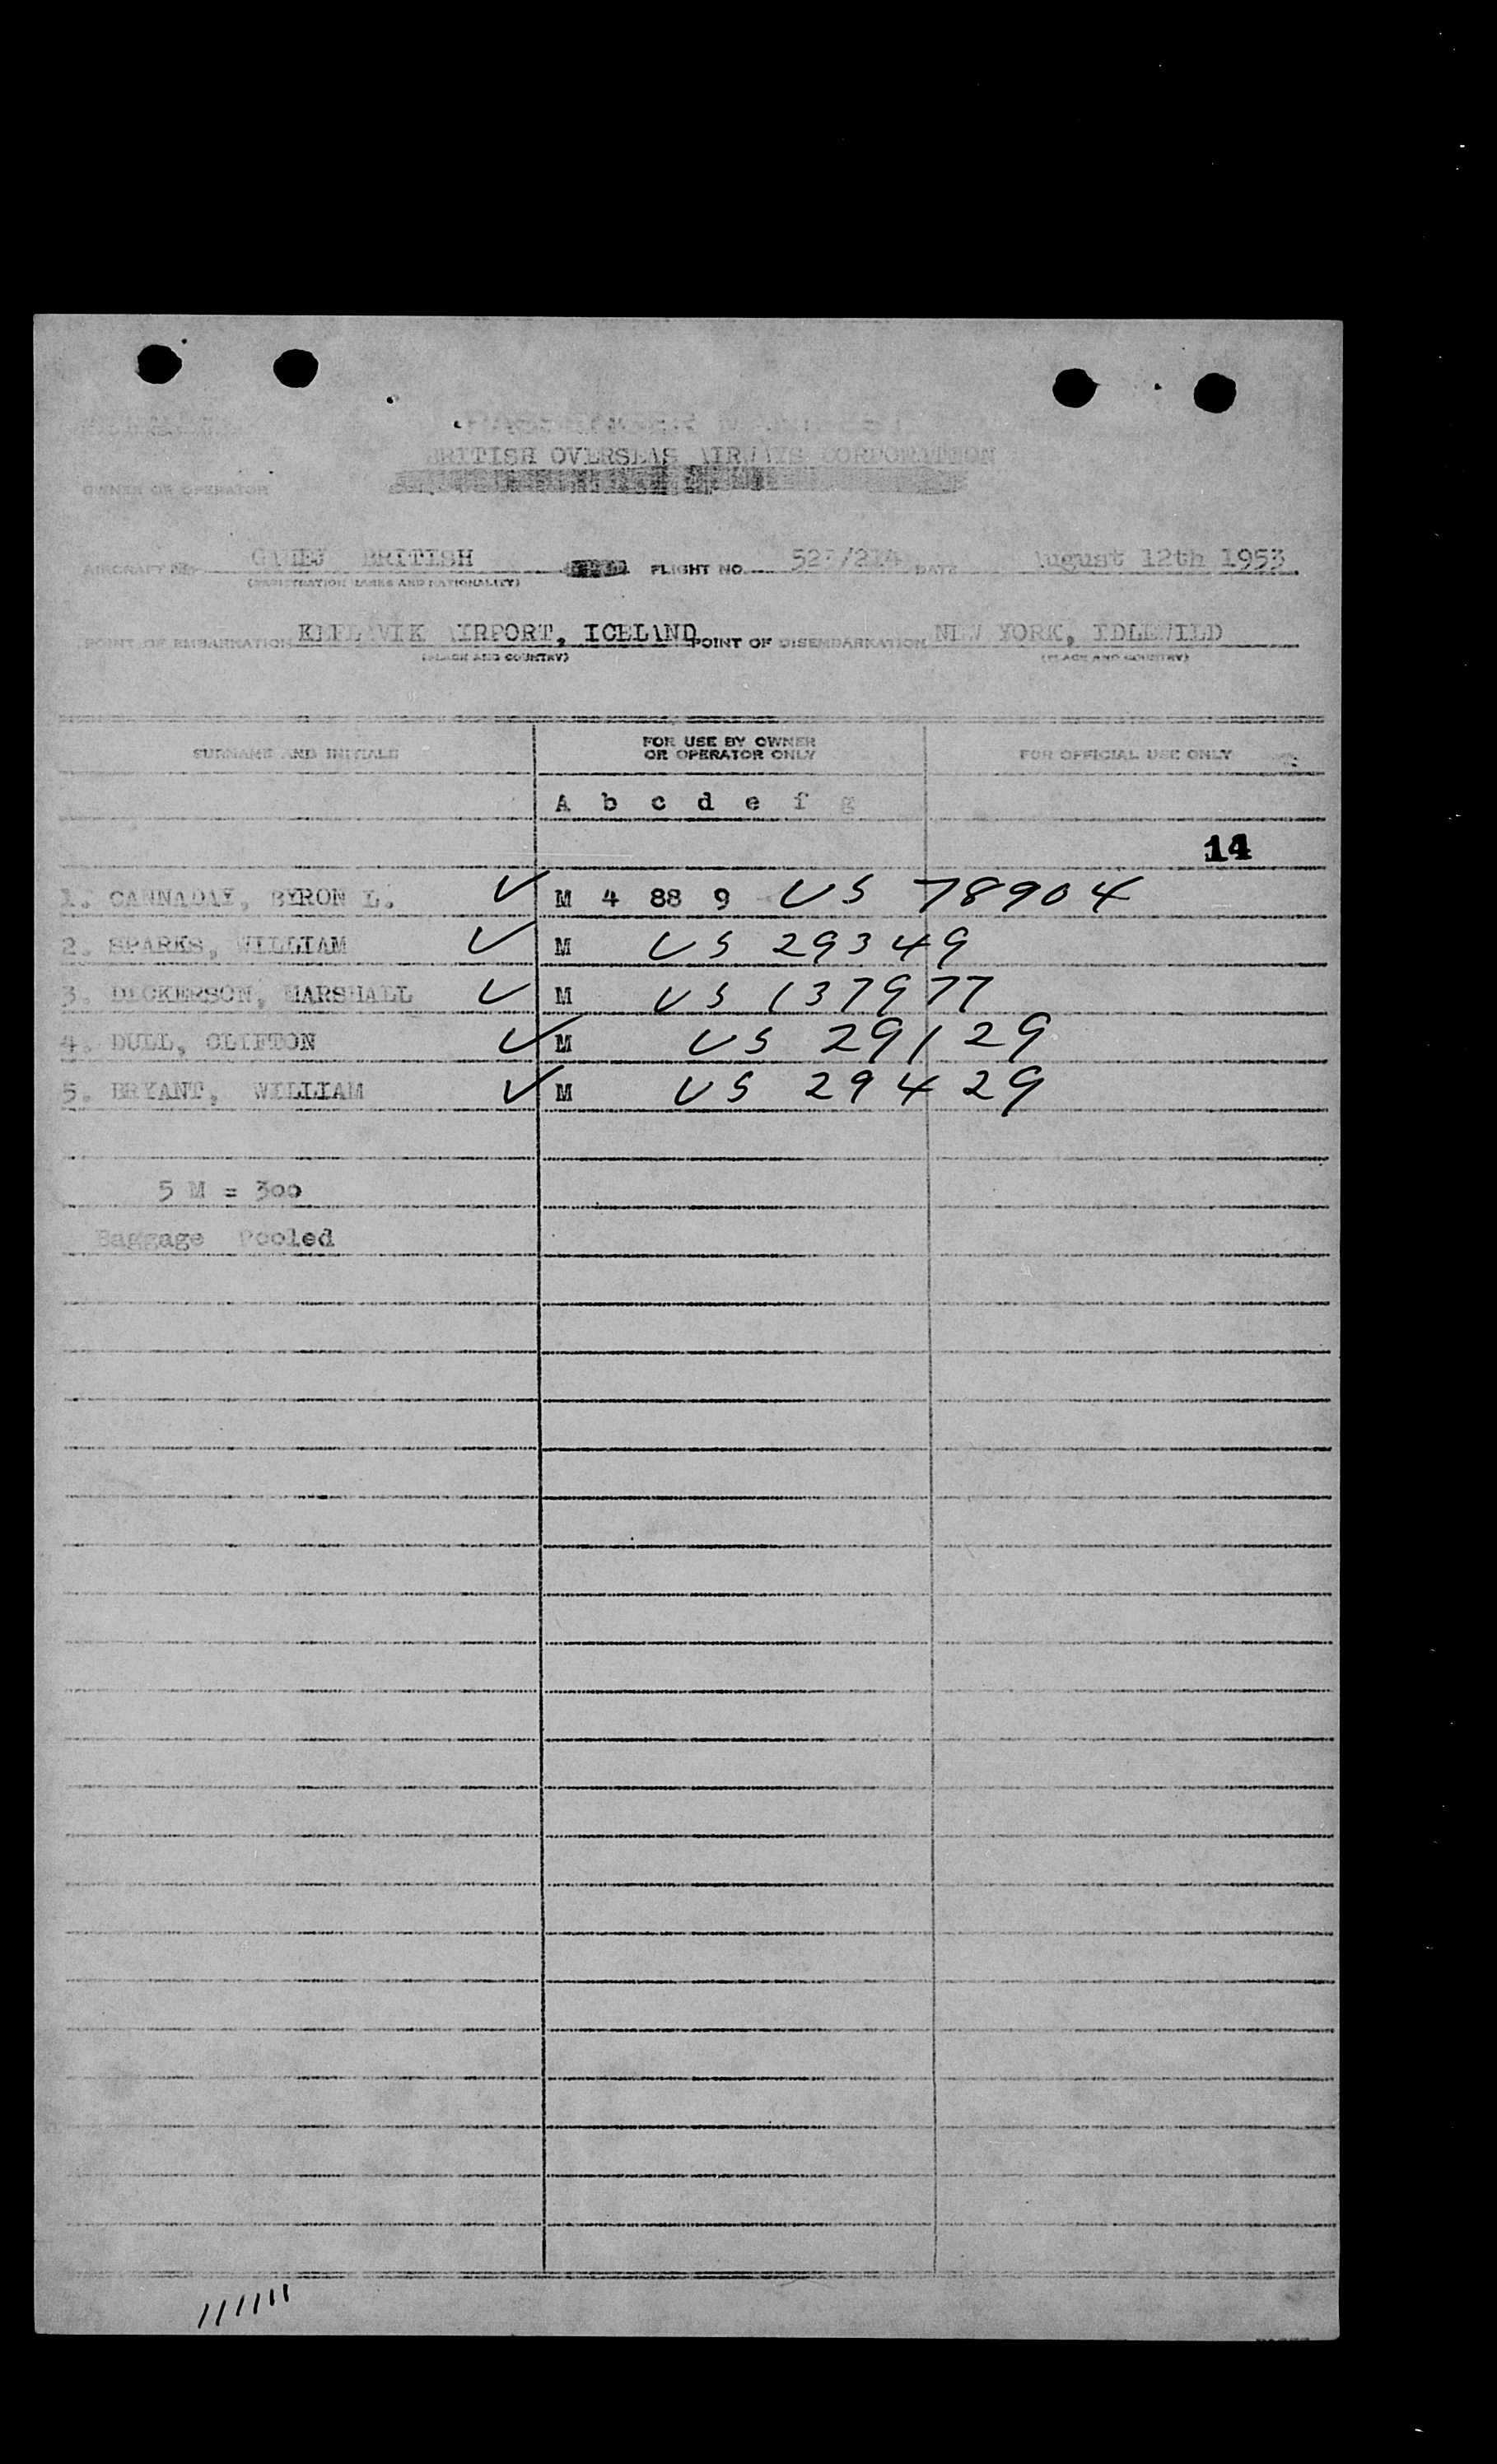 PASSENGER MANIFEST
BRITISH OVERSEAS AIRWAYS CORPORATION
OWNER OR OPERATOR
AIRCRAFT BRITISH FLIGHT NO. DATE August 12th 1953
(REGISTRATION MARKS AND NATIONALITY)
POINT OF EMBARKATION KEFLAVIK AIRPORT, ICELAND POINT OF DISEMBARKATION NEW YORK, IDLEWILD
(PLACE AND COUNTRY) (PLACE AND COUNTRY)
SURNAME AND INITIALS FOR USE BY OWNER OR OPERATOR ONLY FOR OFFICIAL USE ONLY
A b c d e f g
14
1. CANNADAY, BYRON L. ✓ M 4 88 9 US 78904
2. SPARKS, WILLIAM ✓ M US 29349
3. DICKERSON, MARSHALL ✓ M US 137977
4. DULL, CLIFTON ✓ M US 29129
5. BRYANT, WILLIAM ✓ M US 29429
5 M = 300
Baggage Pooled